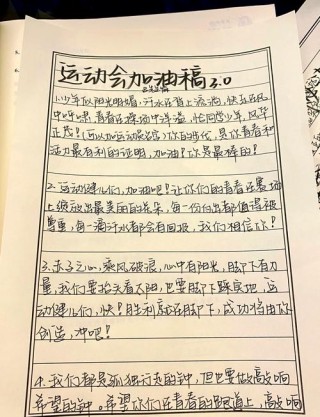 运动会加油稿3.0
1.少年似阳光明媚,汗水在背上流淌,快乐在风
中呼啸,青春在操场中洋溢,恰同学少年,风华
正茂!(可以加运动员名字)你的步伐,是你青春和
活力最有利的证明,加油!你是最棒的!
2.运动健儿们,加油吧!让你们的青春在赛场
上绽放出最美丽的花朵,每一份付出都值得被
尊重,每一滴汗水都会有回报,我们相信你!
3.赤子之心,乘风破浪,心中有阳光,脚下有力
量,我们要抬头看太阳,也要脚下踩实地,运
动健儿们,快!胜利就在脚下,成功将由你
创造,冲吧!
4.我们都是孤独行走的钟,但也要做敲响
希望的钟。希望你们在青春的跑道上,敲响